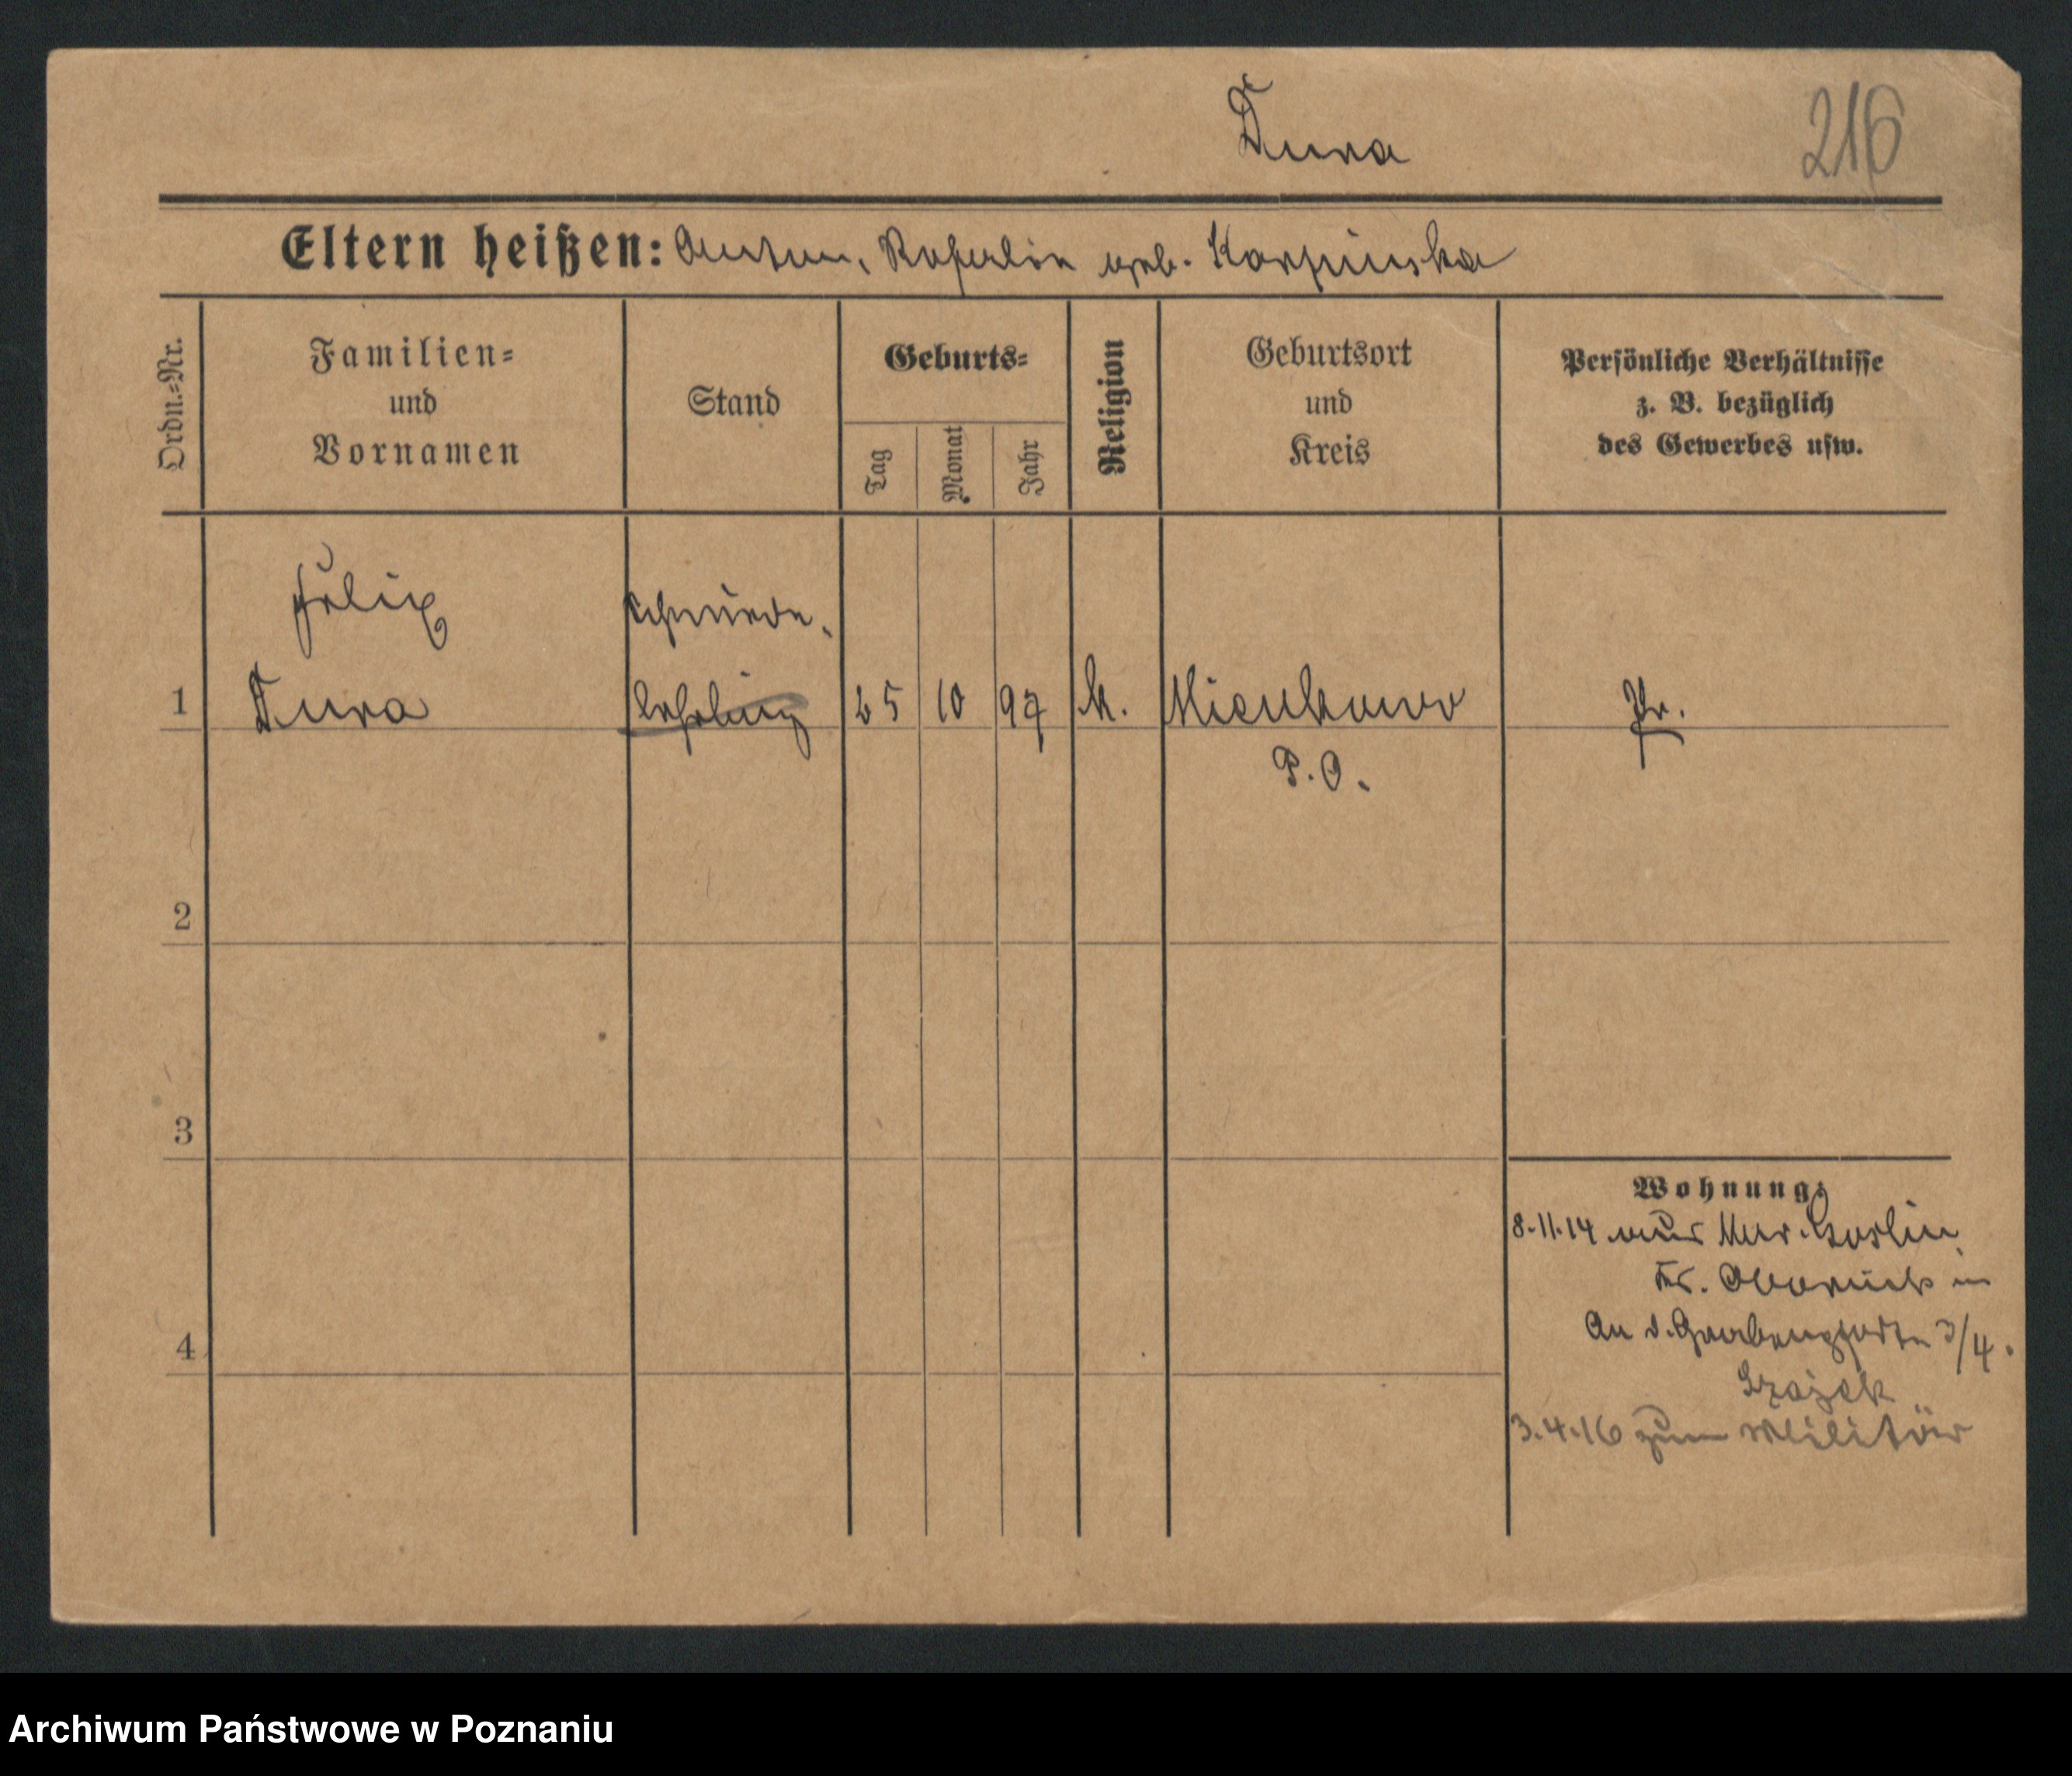 Dura
216
Eltern heißen: Anton, Rosalie geb. Karpinska
Ordn.=Nr.
Familien=
und
Vornamen
Stand
Geburts=
Tag
Monat
Jahr
Religion
Geburtsort
und
Kreis
Persönliche Verhältnisse
z. B. bezüglich
des Gewerbes usw.
Felix
Schmiede
1 Dura lehrling 25 10 97 k. Mienkowo Pr.
P. O.
2
3
4
Wohnung:
8.11.14 aus Mur. Goslin
Kr. Obornick in
An d. Grabenpforte 3/4.
3.4.16 zum Militär
Archiwum Państwowe w Poznaniu